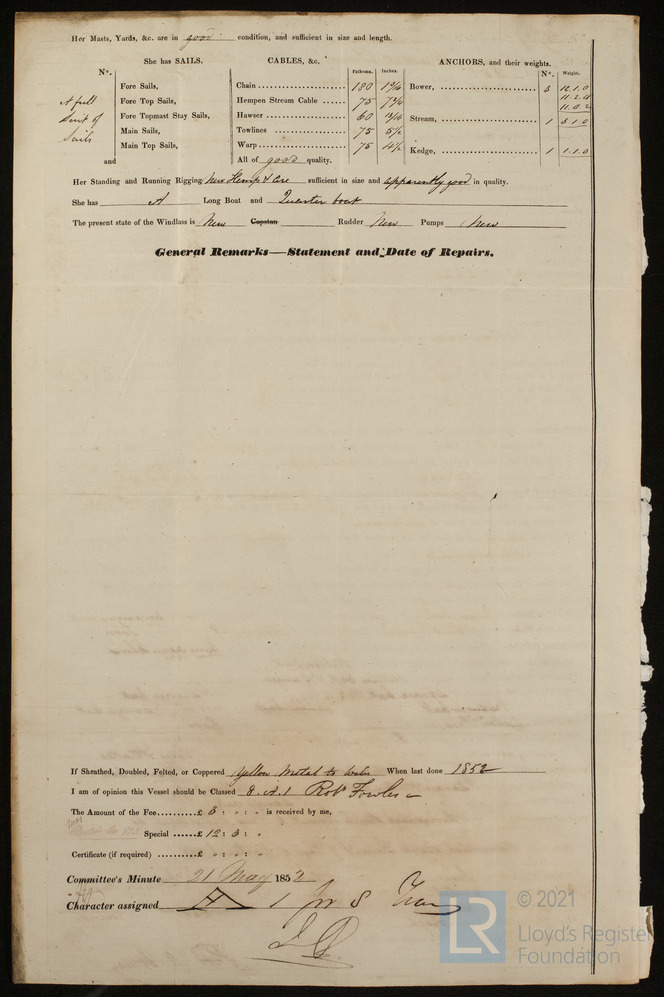 Her Masts, Yards, &c. are in good condition, and sufficient in size and length.
She has SAILS.
CABLES, &c.
ANCHORS, and their weights.
N°.
Fathoms. Inches.
N°. Weight.
A full
Suit of
Sails
and
Fore Sails,
Fore Top Sails,
Fore Topmast Stay Sails,
Main Sails,
Main Top Sails,
Chain 180
Hempen Stream Cable 75
Hawser 60
Towlines 75
Warp 75
All of good quality.
Bower, 3 12.1.0
11.2.4
11.0.2
Stream, 1 3.1.0
Kedge, 1 1.1.0
Her Standing and Running Rigging New Hemp & sufficient in size and apparently good in quality.
She has A Long Boat and Quarter boat
The present state of the Windlass is New Capstan Rudder New Pumps New
General Remarks—Statement and Date of Repairs.
If Sheathed, Doubled, Felted, or Coppered Yellow Metal to When last done 1852
I am of opinion this Vessel should be Classed 8.A.1 Robt Fowles
The Amount of the Fee £ 5 : is received by me,
Special £ 12 : 3 :
Certificate (if required) £
Committee's Minute 21 May 1852
Character assigned A 1 for 8 Years
© 2021
LR
Lloyd's Register
Foundation